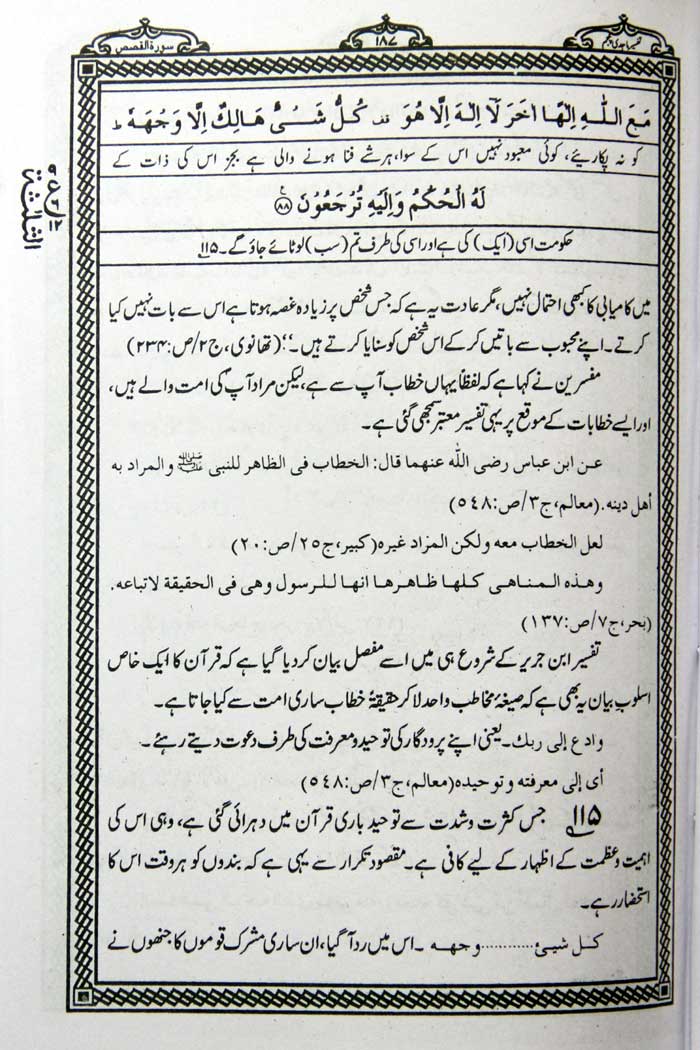 تفسیر ماجدی پنجم
۱۸۷
سورة القصص
مَعَ اللّٰهِ اِلٰهًا اٰخَرَ لَاۤ اِلٰهَ اِلَّا هُوَ قف كُلُّ شَیْءٍ هَالِكٌ اِلَّا وَجْهَهٗ ط
کو نہ پکاریئے، کوئی معبود نہیں اس کے سوا، ہر شے فنا ہونے والی ہے بجز اس کی ذات کے
لَهُ الْحُكْمُ وَاِلَیْهِ تُرْجَعُوْنَ ﴿۸۸﴾
حکومت اسی (ایک) کی ہے اور اسی کی طرف تم (سب) لوٹائے جاؤ گے۔ ۱۱۵
الثلثة
میں کامیابی کا کبھی احتمال نہیں، مگر عادت یہ ہے کہ جس شخص پر زیادہ غصہ ہوتا ہے اس سے بات نہیں کیا
کرتے۔ اپنے محبوب سے باتیں کر کے اس شخص کو سنایا کرتے ہیں۔‘‘ (تھانوی، ج۲/ص:۲۳۴)
مفسرین نے کہا ہے کہ لفظاً یہاں خطاب آپ سے ہے، لیکن مراد آپ کی امت والے ہیں،
اور ایسے خطابات کے موقع پر یہی تفسیر معتبر سمجھی گئی ہے۔
عن ابن عباس رضی اللہ عنهما قال: الخطاب فی الظاهر للنبی ﷺ والمراد به
أهل دینه. (معالم، ج۳/ص:۵۴۸)
لعل الخطاب معه ولكن المراد غیره (کبیر، ج۲۵/ص:۲۰)
وهذه المناهی کلها ظاهرها انها للرسول وهی فی الحقیقة لاتباعه.
(بحر، ج۷/ص:۱۳۷)
تفسیر ابن جریر کے شروع ہی میں اسے مفصل بیان کر دیا گیا ہے کہ قرآن کا ایک خاص
اسلوبِ بیان یہ بھی ہے کہ صیغۂ مخاطب واحد لاکر حقیقۃً خطاب ساری امت سے کیا جاتا ہے۔
وادع إلى ربك۔ یعنی اپنے پرودگار کی توحید و معرفت کی طرف دعوت دیتے رہئے۔
أی إلى معرفته وتوحیده (معالم، ج۳/ص:۵۴۸)
۱۱۵ جس کثرت و شدت سے توحید باری قرآن میں دہرائی گئی ہے، وہی اس کی
اہمیت و عظمت کے اظہار کے لیے کافی ہے۔ مقصود تکرار سے یہی ہے کہ بندوں کو ہر وقت اس کا
استحضار رہے۔
کل شیئ............وجهه۔ اس میں رد آ گیا، ان ساری مشرک قوموں کا جنھوں نے